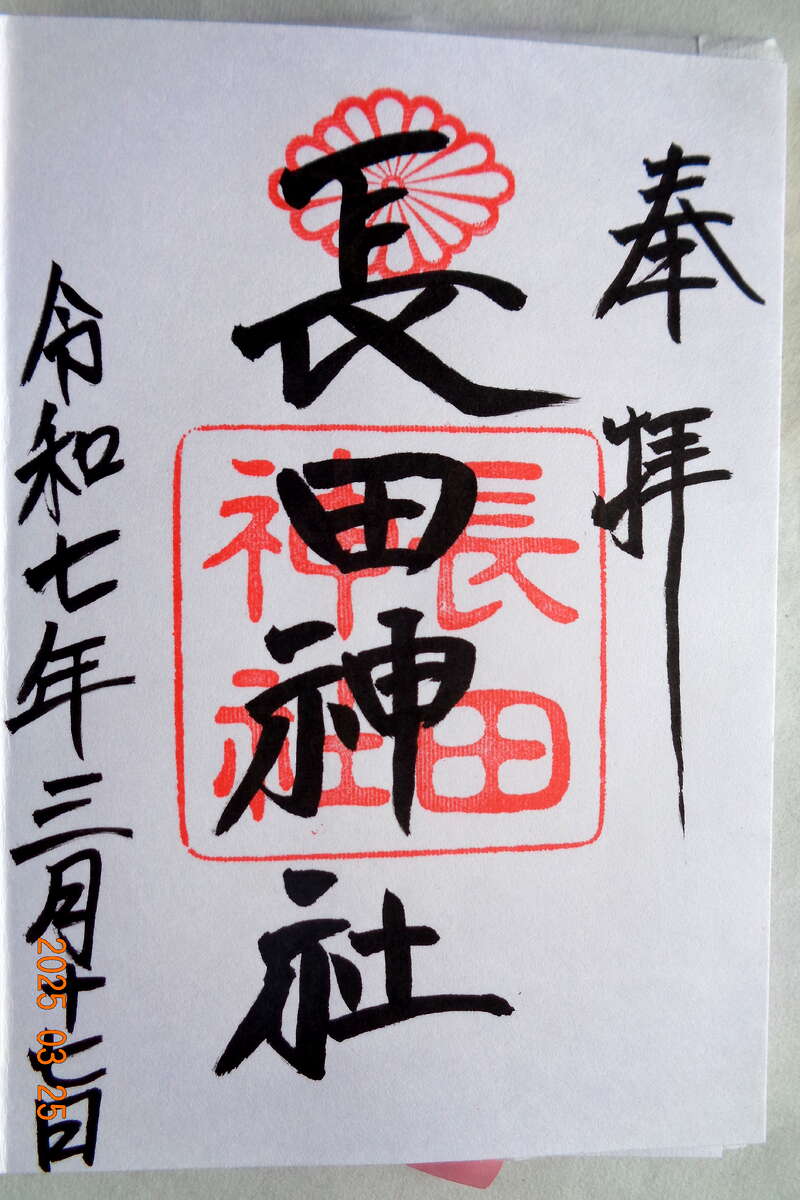 奉拝
長田神社
長田
神社
令和七年三月十七日
2025 03 25